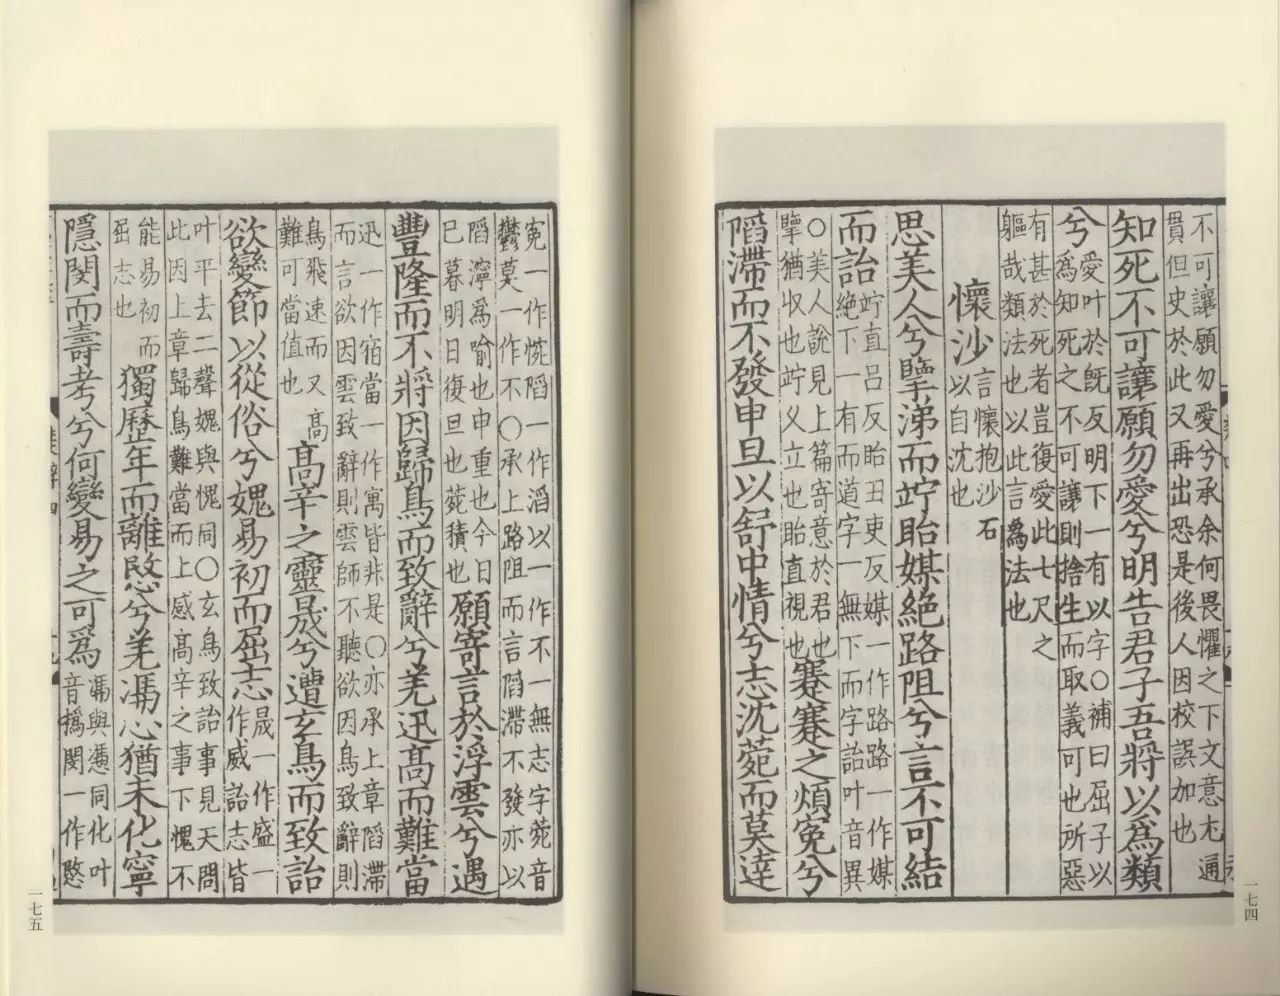 不可讓願勿愛兮承余何畏懼之下文意尤通
貫但史於此又再出恐是後人因校誤加也
知死不可讓願勿愛兮明告君子吾將以爲類
兮愛叶於旣反明下一有以字〇補曰屈子以
爲知死之不可讓則捨生而取義可也所惡
有甚於死者豈復愛此七尺之
軀哉類法也以此言爲法也
懷沙言懷抱沙石以自沈也
思美人兮擥涕而竚眙媒絕路阻兮言不可結
而詒竚直呂反眙丑吏反媒一作路路一作媒
絕下一有而道字一無下而字詒叶音異
〇美人說見上篇寄意於君也
擥猶收也竚义立也眙直視也蹇蹇之煩寃兮
䧟滯而不發申旦以舒中情兮志沈菀而莫達
一七四
寃一作惋䧟一作滔以一作不一無志字菀音
鬱莫一作不〇承上路阻而言䧟滯不發亦以
䧟濘爲喻也申重也今日
已暮明日復旦也菀積也願寄言於浮雲兮遇
豐隆而不將因歸鳥而致辭兮羌迅高而難當
迅一作宿當一作寓皆非是〇亦承上章䧟滯
而言欲因雲致辭則雲師不聽欲因鳥致辭則
鳥飛速而又高
難可當值也高辛之靈晟兮遭玄鳥而致詒
欲變節以從俗兮媿易初而屈志晟一作盛一
作威詒志皆
叶平去二聲媿與愧同〇玄鳥致詒事見天問
此因上章歸鳥難當而上感高辛之事下愧不
能易初而
屈志也獨歷年而離愍兮羌馮心猶未化寧
隱閔而壽考兮何變易之可爲馮與憑同化叶
音撝閔一作愍
一七五